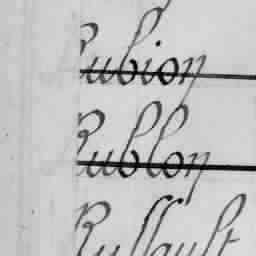 Rubion
Rublon
Russault